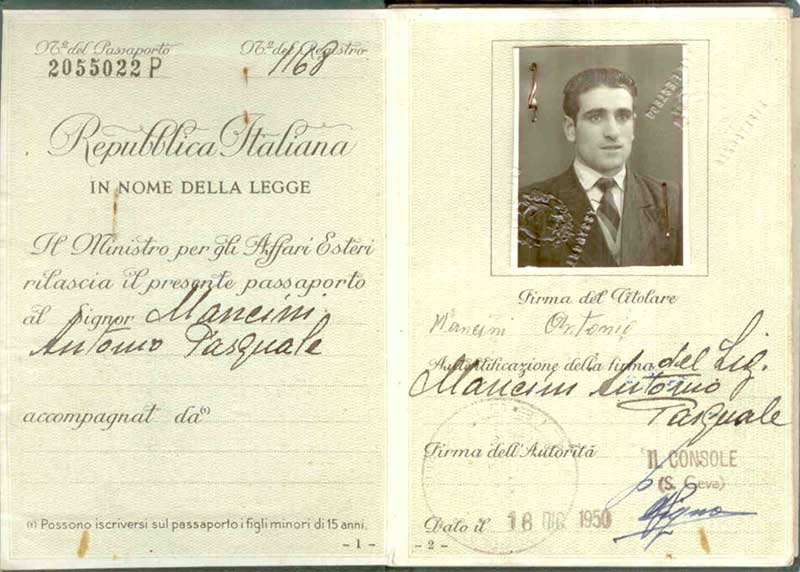 Nº del Passaporto
2055022 P
Nº del Registro
1168
Repubblica Italiana
IN NOME DELLA LEGGE
Il Ministro per gli Affari Esteri
rilascia il presente passaporto
al Signor Mancini
Antonio Pasquale
accompagnat da(1)
(1) Possono iscriversi sul passaporto i figli minori di 15 anni.
- 1 -
Firma del Titolare
Mancini Antonio
Autentificazione della firma del Sig.
Mancini Antonio
Pasquale
Firma dell'Autorità
IL CONSOLE
(S. Geva)
Dato il 18 DIC 1950
- 2 -